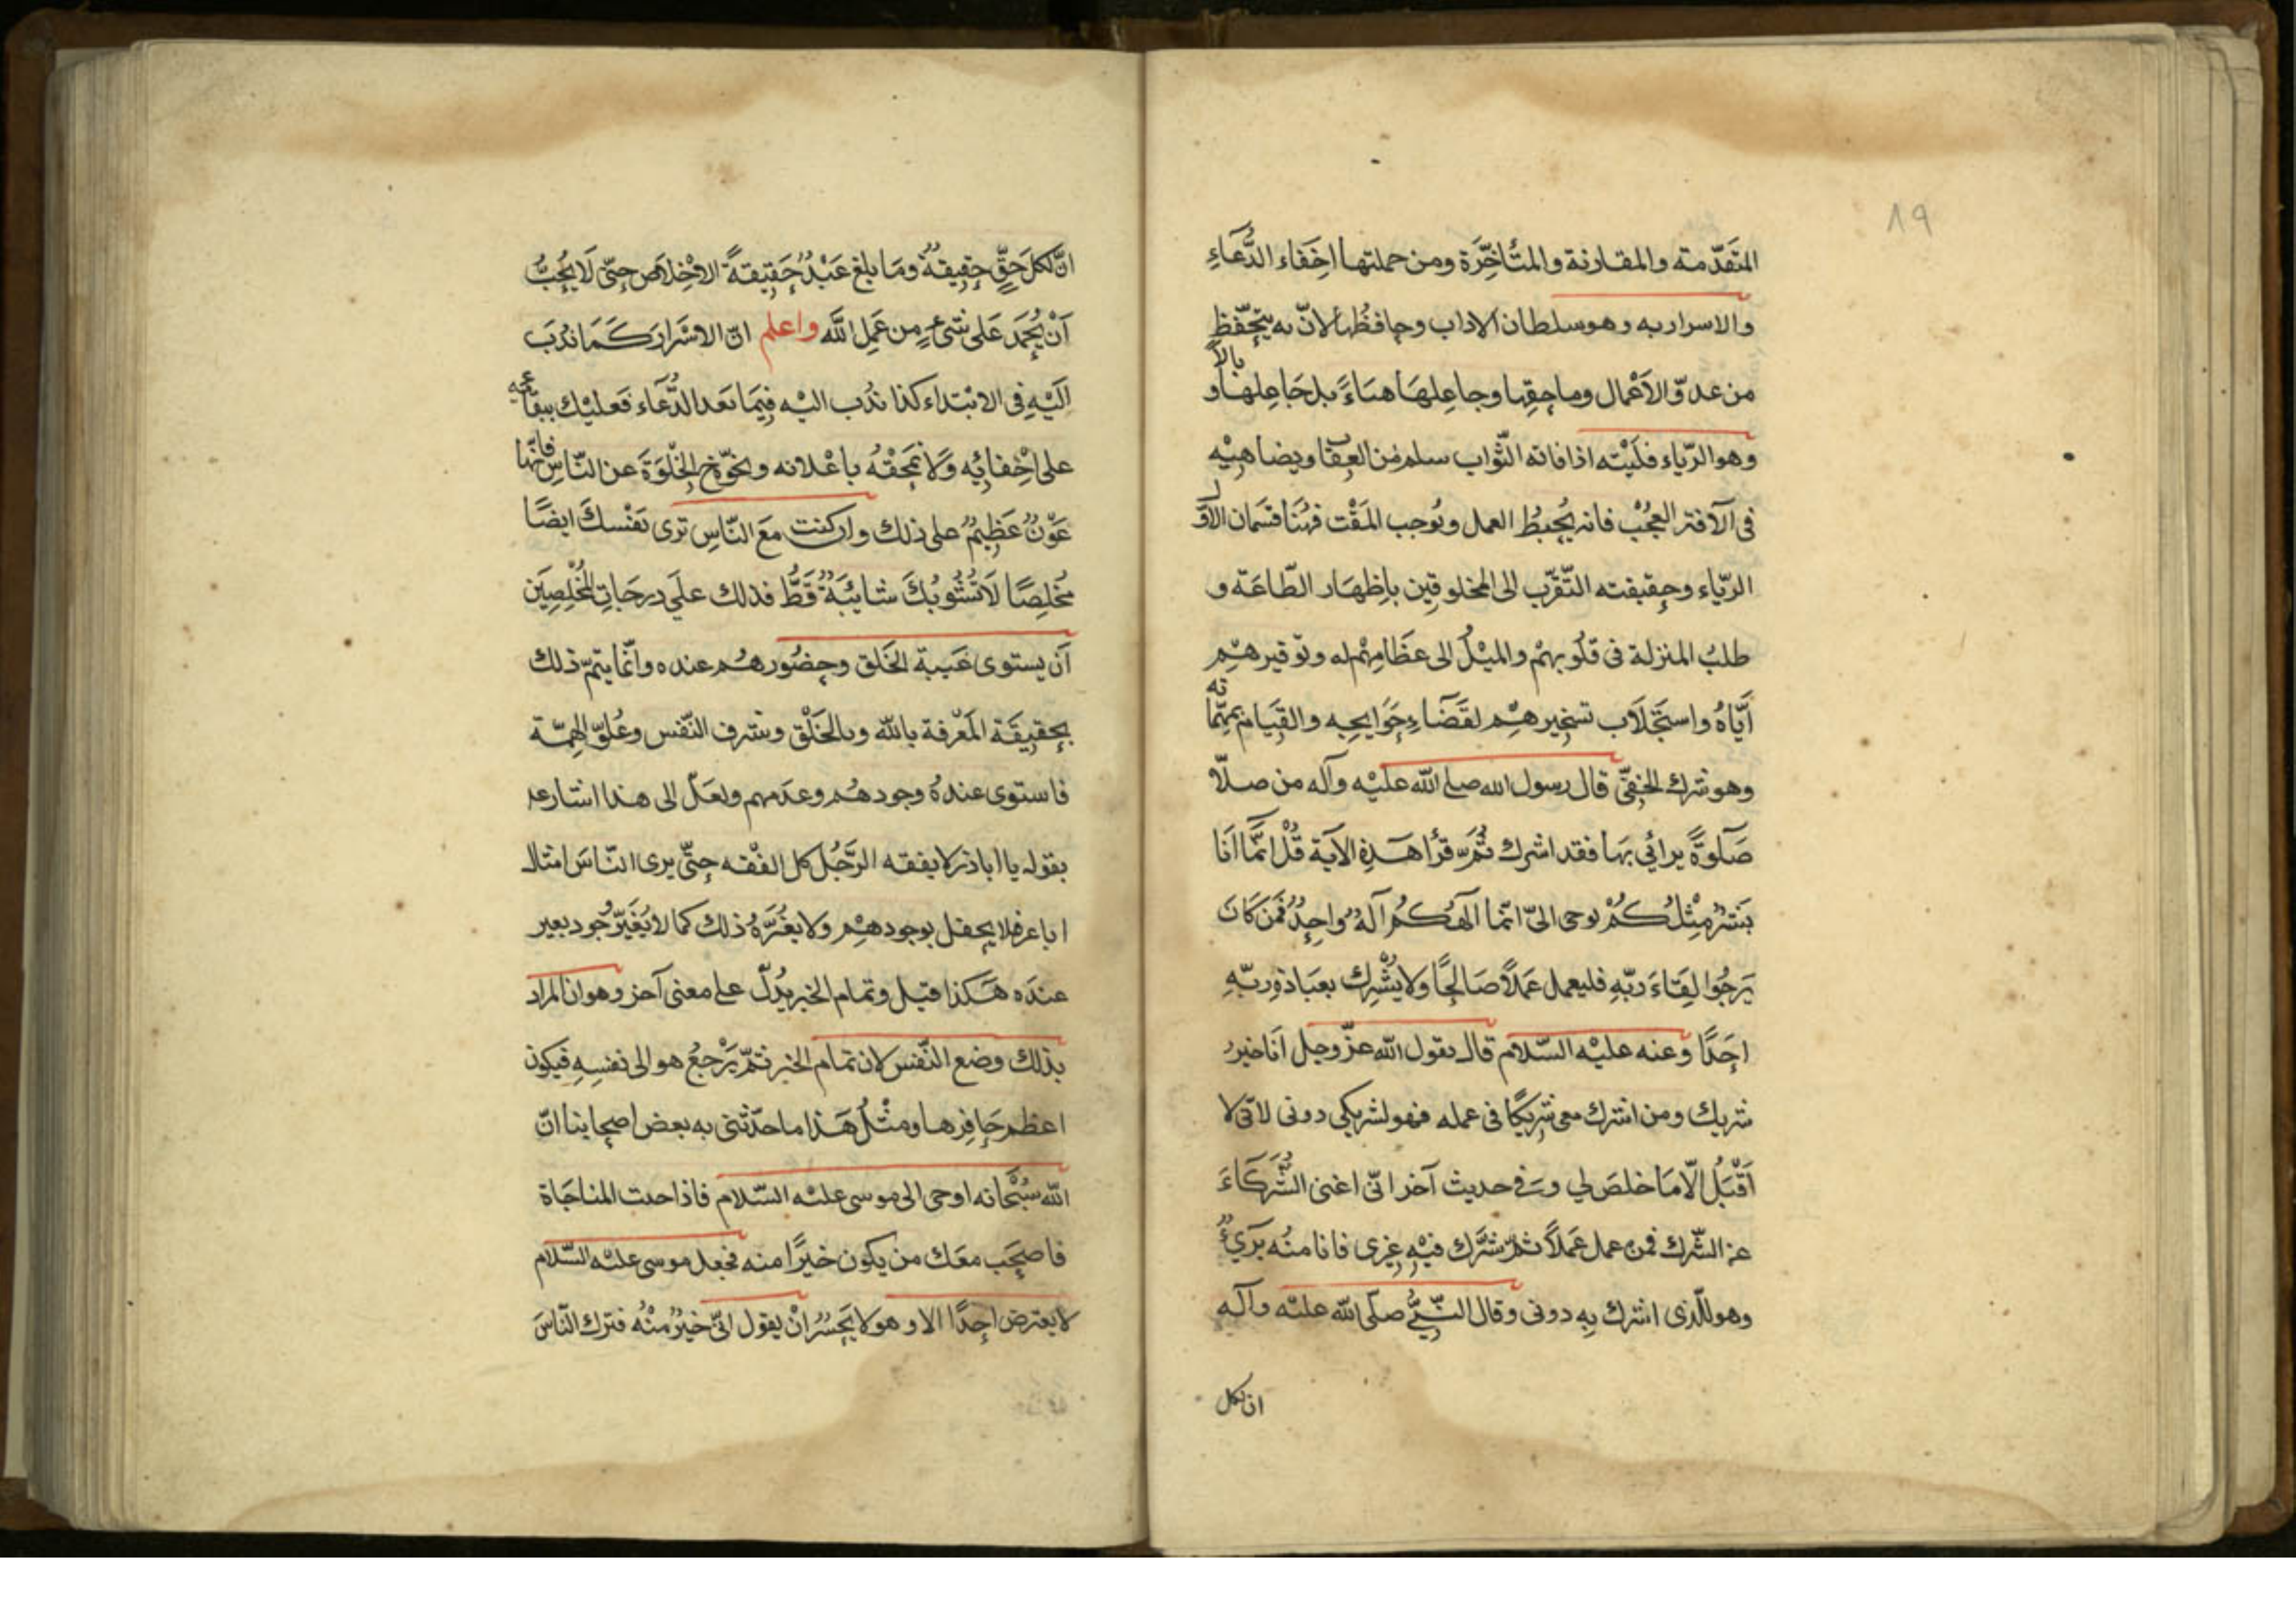 ٨٩
المتقدّمة والمقارنة والمتأخّرة ومن جملتها اخفاء الدُّعاءِ
والاسرار به وهو سلطان الآداب وحافظُها لانّ به يتحفّظ
من عدوّ الاَعْمال وماحقِها وجاعِلهَا هبَاءً بل جَاعِلها وبالاً
وهو الرّياء فليْته اذا فاته الثّواب سلم من العِقاب ويضاهيْه
فى الآفة العجُبْ فانه يُحبطُ العمل ويُوجب المَقْت فهُنا قسمان الاوّل
الرّياء وحقيقته التّقرّب الى المخلوقين باِظهَار الطّاعَة و
طلبُ المنزلة فى قلُوبهمْ والميْلُ الى عظامهمْ له وتوْقيرهمْ
ايّاهُ واستجْلَاب تسْخيرهمْ لقضَاءِ حَوَايجه والقيَام بمهمّاته
وهو شرك الخفىّ قال رسول الله صلى الله عليْه وآله من صلّا
صَلوةً يرائي بهَا فقد اشرك ثُمّ قرأ هَذِهِ الآية قُلْ انّما اَنَا
بَشَرٌ مِثْلُكُمْ يوحى الىّ انّما الَهكُمْ آلهٌ واحِدٌ فَمَن كَانَ
يَرجُوا لِقَاءَ ربّهِ فليعمل عَمَلاً صَالِحًا ولا يُشْرِك بعبَادَةِ ربّهِ
احَدًا وعنه عليْه السّلام قال يقول الله عزّ وجل اَنا خير
شريك ومن اشرك معى شريكًا فى عمله فهو لشريكى دونى لانّى لا
اَقْبَلُ الّا مَا خلصَ لي وفى حديث آخر انّى اغنى الشُّرَكَاءَ
عن الشّرك فمن عمل عَمَلاً ثمّ شرّك فيْهِ غيْرى فانا منْه برَيءٌ
وهو للّذى اشرك بِه دونى وقال النّبىّ صلّى الله عليْه وآله
ان لكل
انّ لكل حَقٍّ حقيقةً ومَا بلغ عَبْدٌ حَقيقةً الاخْلاص حتّى لَا يُحبُّ
اَنْ يُحْمَدَ عَلى شىْءٍ من عَمِلِ للهَ واعلم انّ الاسْرَارَ كَمَا نُدبَ
اليْهِ فى الابْتداء كذا نُدب اليْه فيمَا بَعد الدُّعَاء فعليْك ببقائه
على اخْفائِه وَلا تمحقْهُ باعْلانه وبخوّخ الخلْوَةَ عن النّاسِ فانّها
عَوْنٌ عَظِيمٌ على ذلك وان كنت مَعَ النّاسِ ترى نفْسكَ ايضًا
مُخلِصًا لَا تشُوبُكَ شايبَةٌ قَطُّ فذلك علَى درجَاتِ المُخْلِصِيَن
اَن يستوى غَيبة الخَلق وحضُورهُم عنده وانّما يتمّ ذلك
بحقيقَة المَعْرفة باللّه وبالخَلْق وشرف النّفس وعُلوّ الهمّة
فاستوى عندهُ وجودهُم وعدَمهم ولعَلّ الى هذا اشارعم
بقوله يا اباذر لا يفقه الرّجُل كل الفقْه حتّى يرى النّاسَ امثال
اباعر فلا يحفل بوجودهمْ ولا يغُيّرُهُ ذلك كما لا يُغَيّرُ وجُود بعير
عندَه هَكذا قيل وتمام الخبر يدُلّ على معنى آخر وهو ان المراد
بذلك وضع النّفس لان تمام الخبر ثمّ يَرْجعُ هو الى نفسِهِ فيكون
اعظم حَاقِرٍ لها ومثْلُ هَذا ما حدّثنى به بعض اصحابنا انّ
الله سُبْحَانه اوحى الى موسى عليْه السّلام فاذا جئت المناجَاة
فاصحَب معَك من يكون خيْرًا منه فجعل موسى عليْه السّلام
لا يعترض احدًا الا وهو لا يَجسُر انْ يقول انّى خيْرٌ منْهُ فترك النّاسَ